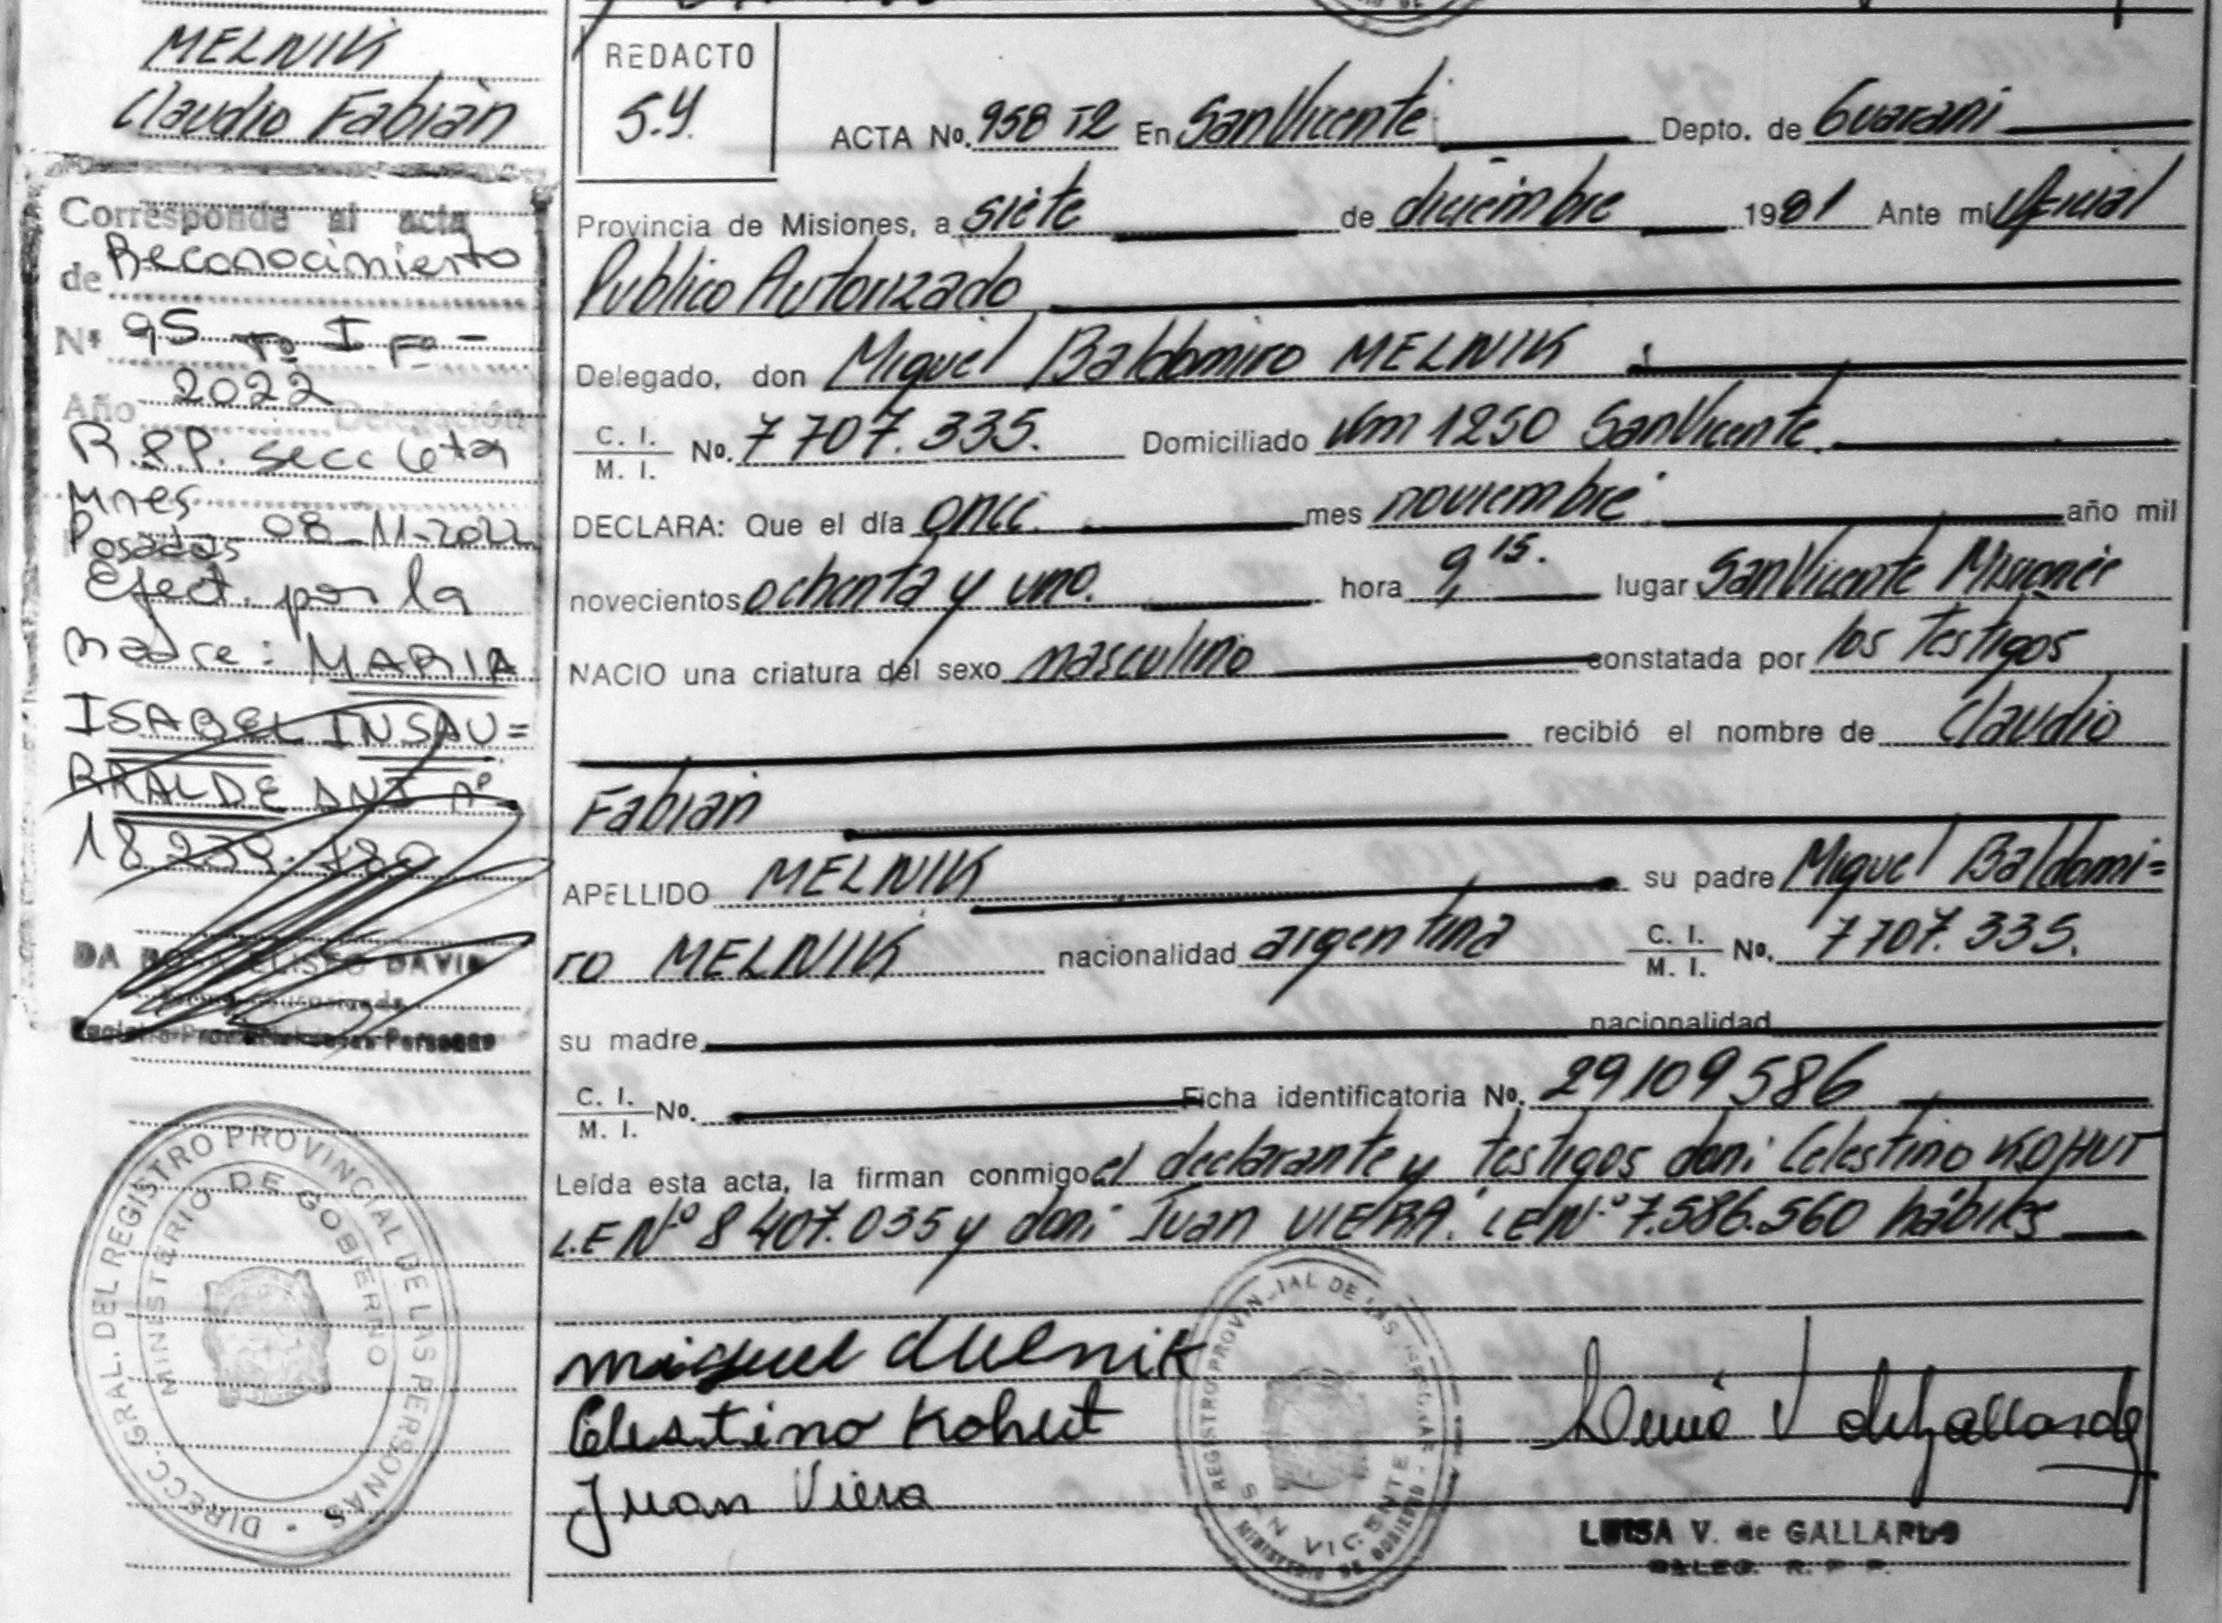 MELNIK
Claudio Fabián
Corresponde al acta
de Reconocimiento
Nº 95 Tº I Fº -
Año 2022 Delegación
R.P.P. Secc
Mnes
Posadas 08-11-2022
Efect. por la
madre: MARIA
ISABEL INSAU=
RRALDE DNI nº
18
DA ROSA ELISEO DAVID
DIRECC. GRAL. DEL REGISTRO PROVINCIAL DE LAS PERSONAS
MINISTERIO DE GOBIERNO
REDACTO
S.Y.
ACTA No. 958 T2 En San Vicente Depto. de Guarani
Provincia de Misiones, a siete de diciembre 1981 Ante mi Oficial
Publico Autorizado
Delegado, don Miguel Baldomiro MELNIK
C. I.
M. I. No. 7707.335. Domiciliado Km 1250 San Vicente
DECLARA: Que el día once mes noviembre año mil
novecientos ochenta y uno. hora 9,15. lugar San Vicente Misiones
NACIO una criatura del sexo masculino constatada por los testigos
recibió el nombre de Claudio
Fabián
APELLIDO MELNIK su padre Miguel Baldomi=
ro MELNIK nacionalidad argentina C. I.
M. I. No. 7707.335.
su madre nacionalidad
C. I.
M. I. No. Ficha identificatoria No. 29109586
Leída esta acta, la firman conmigo el declarante y testigos don: Celestino KOHUT
L.E Nº 8407.035 y don: Juan VIERA. LE Nº 7.586.560 hábiles
miguel Melnik
Celestino Kohut
Juan Viera
REGISTRO PROVINCIAL DE LAS PERSONAS
SAN VICENTE
MINISTERIO DE GOBIERNO
LUISA V. de GALLARDO
R. P. P.